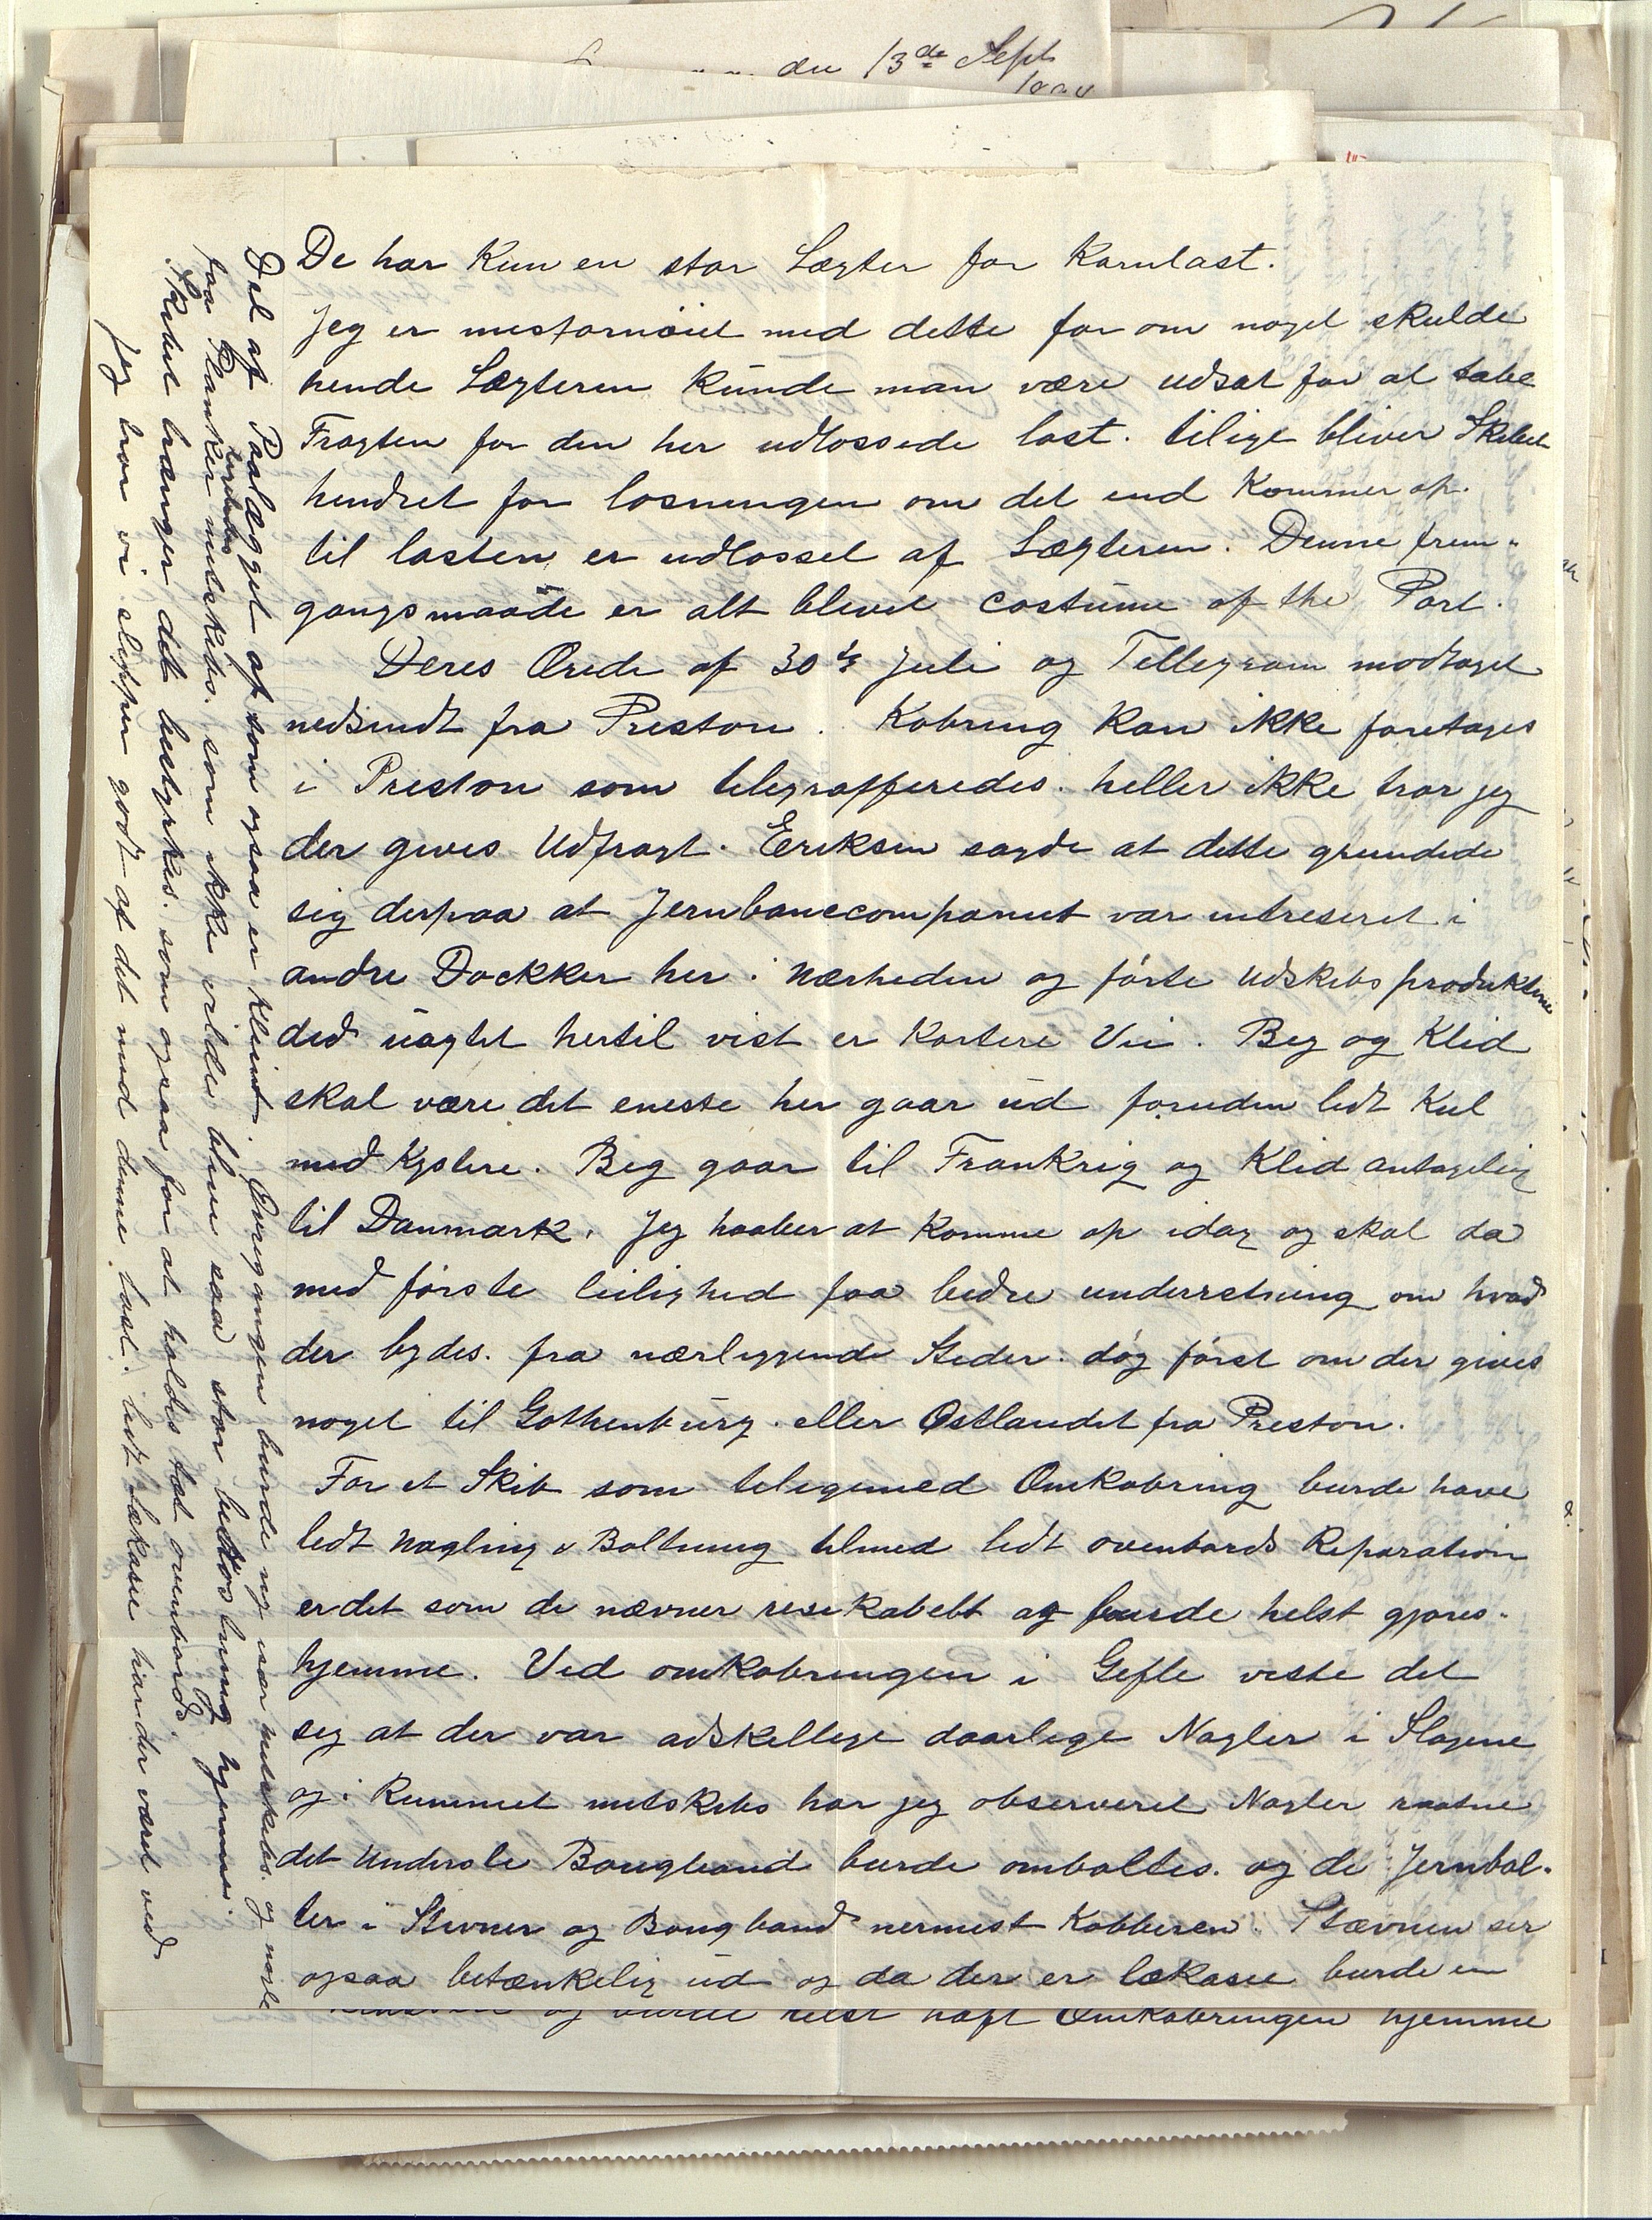 den 13de Sept
De har kun en stor Lægter for Kornlast.
Jeg er misfornöiet med dette for om noget skulde
hende Lægteren Kunde man være udsat for at tabe
Fragten for den her udlossede last. tilige bliver Skibet
hindret for losningen om det end Kommer op.
til lasten er udlosset af Lægteren. Denne frem-
gangsmaade er alt blevet costume of the Port.
Deres Ærede af 30te Juli og Tellegram modtaget
nedsendt fra Preston. Kobring Kan ikke foretages
i Preston som telegrafferedes. heller ikke tror jeg
der gives Udfragt. Eriksen sagde at dette grundede
sig derpaa at Jernbanecompaniet var intreseret i
andre Dockker her i Nærheden og förte Udskibsproduktene
did uagtet hertil vist er Kortere Vei. Beg og Klid
skal være det eneste her gaar ud foruden lidt Kul
med Kystere. Beg gaar til Frankrig og Klid antagelig
til Danmark. Jeg haaber at Komme op idag og skal da
med förste leilighed faa bedre underretning om hvad
der bydes. fra nærliggende Steder. dog först om der gives
noget til Gothenburg eller Østlandet fra Preston.
For et Skib som tilligemed Omkobring burde have
lidt Nagling & Boltning tilmed lidt ovenbords Reparation
er det som de nævner resikabelt og burde helst gjöres.
hjemme. Ved omkobringen i Gefle viste det
sig at der var adskellige daarlige Nagler i Slagene
og i Rummet mitskibs har jeg observeret Nagler raatne
det Underste Bougband burde omboltes. og de Jernbol-
ter i Stevner og Bougband nermest Kobberen. Stævnen ser
ogsaa betænkelig ud og da der er lækasie burde en
og burde helst havt Omkobringen hjemme
Del af Paalægget af som ogsaa er Klemt. Övregangen burde og naar mitskibs. og nogle
faa Planker mitskibs. som ikke vilde blive saa stor bekostning hjemme.
Skibet trænger det bestyrkes. som ogsaa for at holdes tæt ovenbords.
Jeg tror vi slipper godt af det med denne last. lidt Lækasie har der været ved